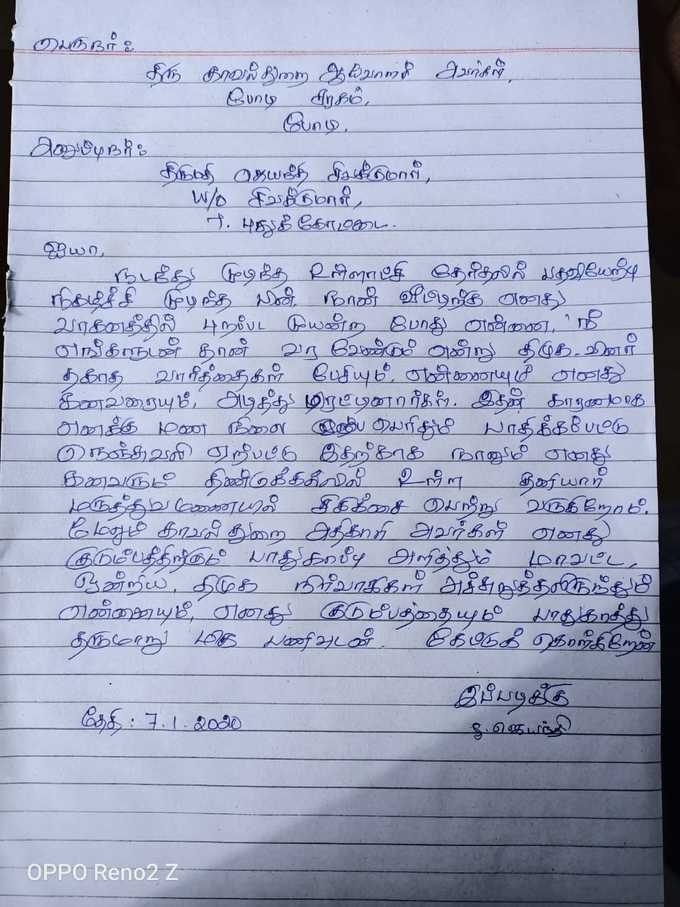 பெருநர் :
திரு காவல்துறை ஆய்வாளர் அவர்கள்,
போடி சரகம்,
போடி.
அனுப்புநர் :
திருமதி ஜெயந்தி சிவக்குமார்,
W/O சிவக்குமார்,
புதுக்கோட்டை.
ஐயா,
நடந்து முடிந்த உள்ளாட்சி தேர்தலில் பதவியேற்பு
நிகழ்ச்சி முடிந்த பின் நான் வீட்டிற்கு எனது
வாகனத்தில் புறப்பட முயன்ற போது என்னை, 'நீ
எங்களுடன் தான் வர வேண்டும் என்று திமுக-வினர்
தகாத வார்த்தைகள் பேசியும், என்னையும் எனது
கணவரையும், அடித்து மிரட்டினார்கள். இதன் காரணமாக
எனக்கு மன நிலை பெரிதும் பாதிக்கப்பட்டு
நெஞ்சுவலி ஏற்பட்டு இதற்காக நானும் எனது
கணவரும் திண்டுக்கல்லில் உள்ள தனியார்
மருத்துவமணையில் சிகிக்சை பெற்று வருகிறோம்.
மேலும் காவல்துறை அதிகாரி அவர்கள் எனது
குடும்பத்திற்கும் பாதுகாப்பு அளித்தும் மாவட்ட,
ஒன்றிய, திமுக நிர்வாகிகள் அச்சுறுத்தலிருந்தும்
என்னையும், எனது குடும்பத்தையும் பாதுகாத்து
தருமாறு மிக பணிவுடன். கேட்டுக் கொள்கிறேன்
இப்படிக்கு
தேதி : 7.1.2020
S. ஜெயந்தி
OPPO Reno2 Z